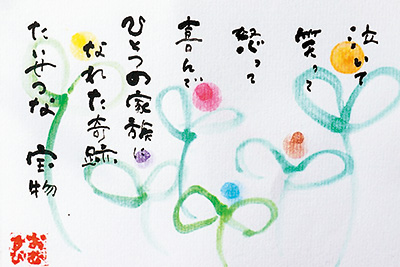 泣いて
笑って
怒って
喜んで
ひとつの家族に
なれた奇跡
たいせつな宝物
おむすび